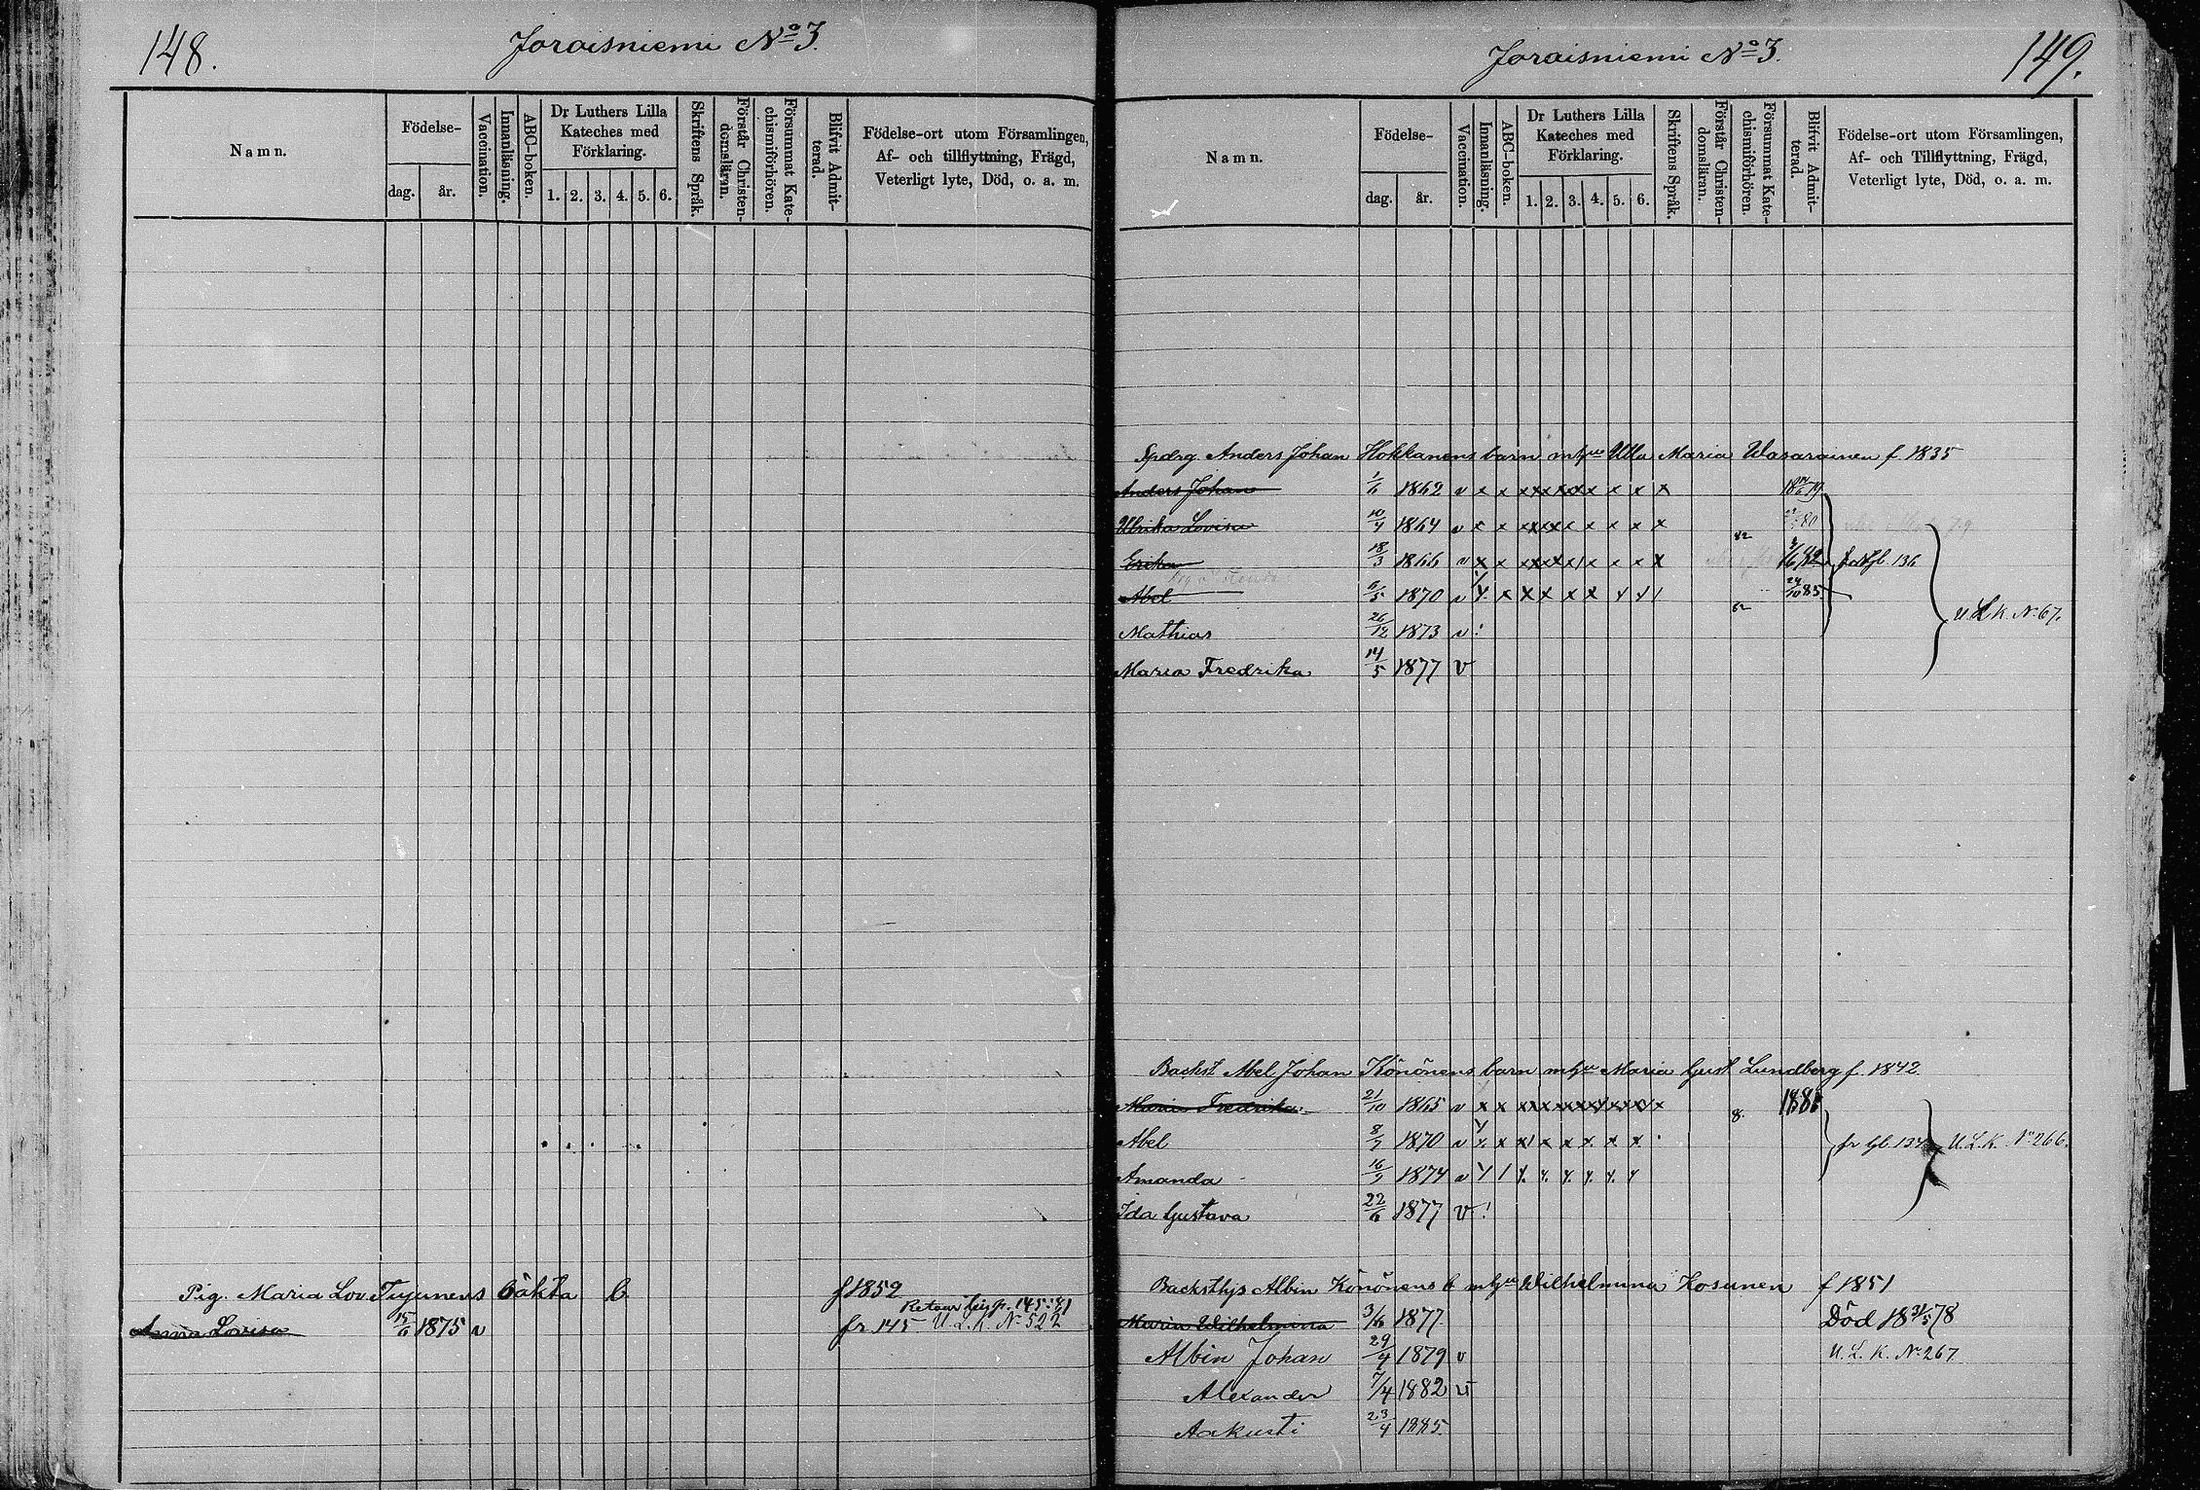 148.
Joroisniemi No 3.
Namn.
Födelse-
dag.
år.
Vaccination.
Innanläsning.
ABC-boken.
Dr Luthers Lilla
Kateches med
Förklaring.
1. 2. 3. 4. 5. 6.
Skriftens Språk.
Förstår Christen-
domsläran.
Försummat Kate-
chismiförhören.
Blifvit Admit-
terad.
Födelse-ort utom Församlingen,
Af- och tillflyttning, Frägd,
Veterligt lyte, Död, o. a. m.
Pig. Maria Lov. oäkta b f 1852
Retour
Anna Lovisa 15/6 1875 v fr 145 U. L. K. No 522
Joroisniemi No 3.
149.
Namn.
Födelse-
dag.
år.
Vaccination.
Innanläsning.
ABC-boken.
Dr Luthers Lilla
Kateches med
Förklaring.
1. 2. 3. 4. 5. 6.
Skriftens Språk.
Förstår Christen-
domsläran.
Försummat Kate-
chismiförhören.
Blifvit Admit-
terad.
Födelse-ort utom Församlingen,
Af- och Tillflyttning, Frägd,
Veterligt lyte, Död, o. a. m.
Anders Johan Hokkanens barn Ulla Maria Wasarainen f. 1835
Anders Johan 1/6 1862 v x x x x x x x x x x
Ulrika Lovisa 10/4 1864 v x x x x x x x x x
Erika 18/3 1866 v x x x x x x x x x 136
Abel 6/5 1870 v x x x x x x 24/10 85
Mathias 26/12 1873 v U. L. K. No 67.
Maria Fredrika 14/5 1877 v
Backst Abel Johan Könönens barn Maria Gust Lundberg f. 1842
Maria Fredrika 21/10 1865 v x x x x x x x x x
Abel 1870 v x x x x x x x U. L. K. No 266.
Amanda 1874 v
Ida Gustava 22/6 1877 v
Albin Könönens b Wilhelmina Kosunen f 1851
Maria Wilhelmina 3/6 1877 Död 18 31/5 78
Albin Johan 29/4 1879 v U. L. K. No 267
Alexander 7/4 1882 v
Aakusti 23/4 1885